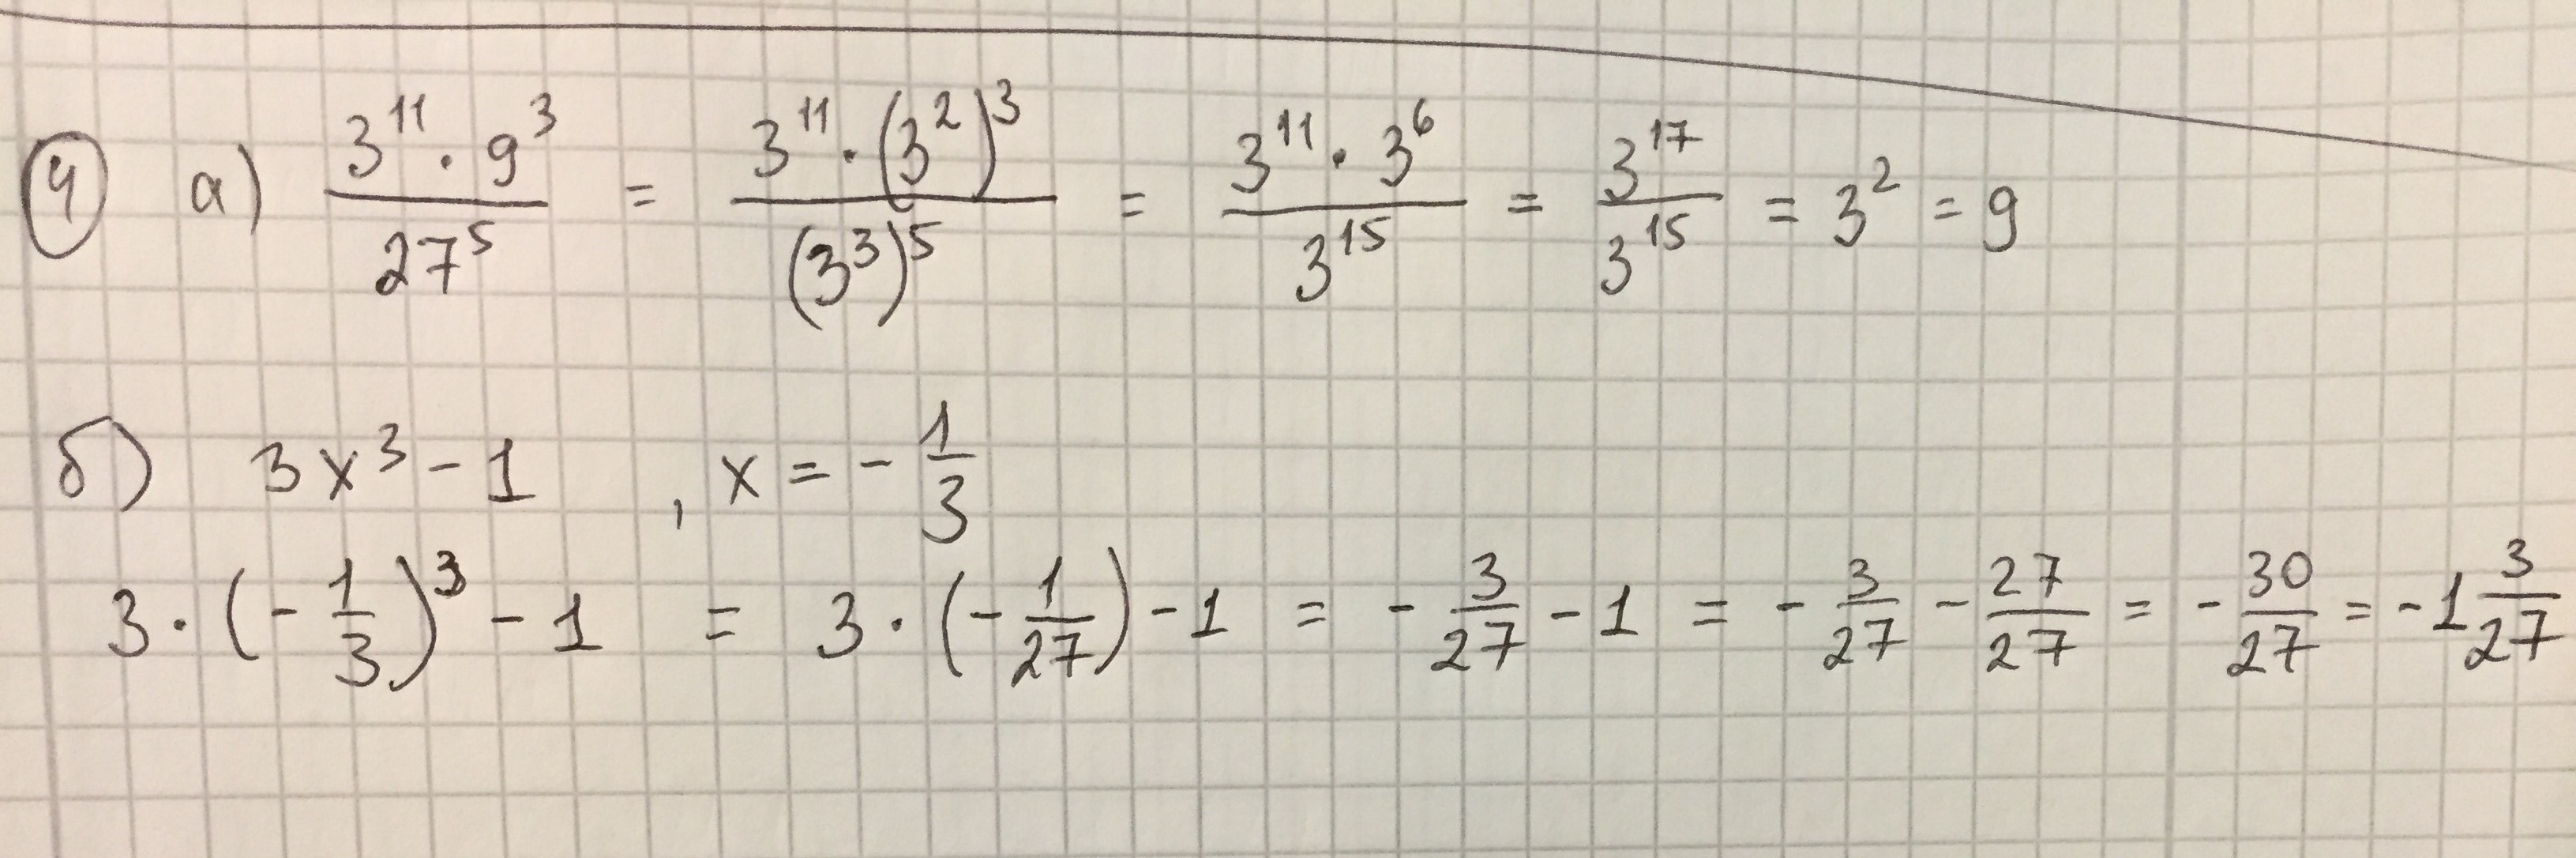 ④ а) 3¹¹ · 9³ / 27⁵ = 3¹¹ · (3²)³ / (3³)⁵ = 3¹¹ · 3⁶ / 3¹⁵ = 3¹⁷ / 3¹⁵ = 3² = 9
б) 3x³ - 1 , x = - 1/3
3 · (- 1/3)³ - 1 = 3 · (- 1/27) - 1 = - 3/27 - 1 = - 3/27 - 27/27 = - 30/27 = - 1 3/27